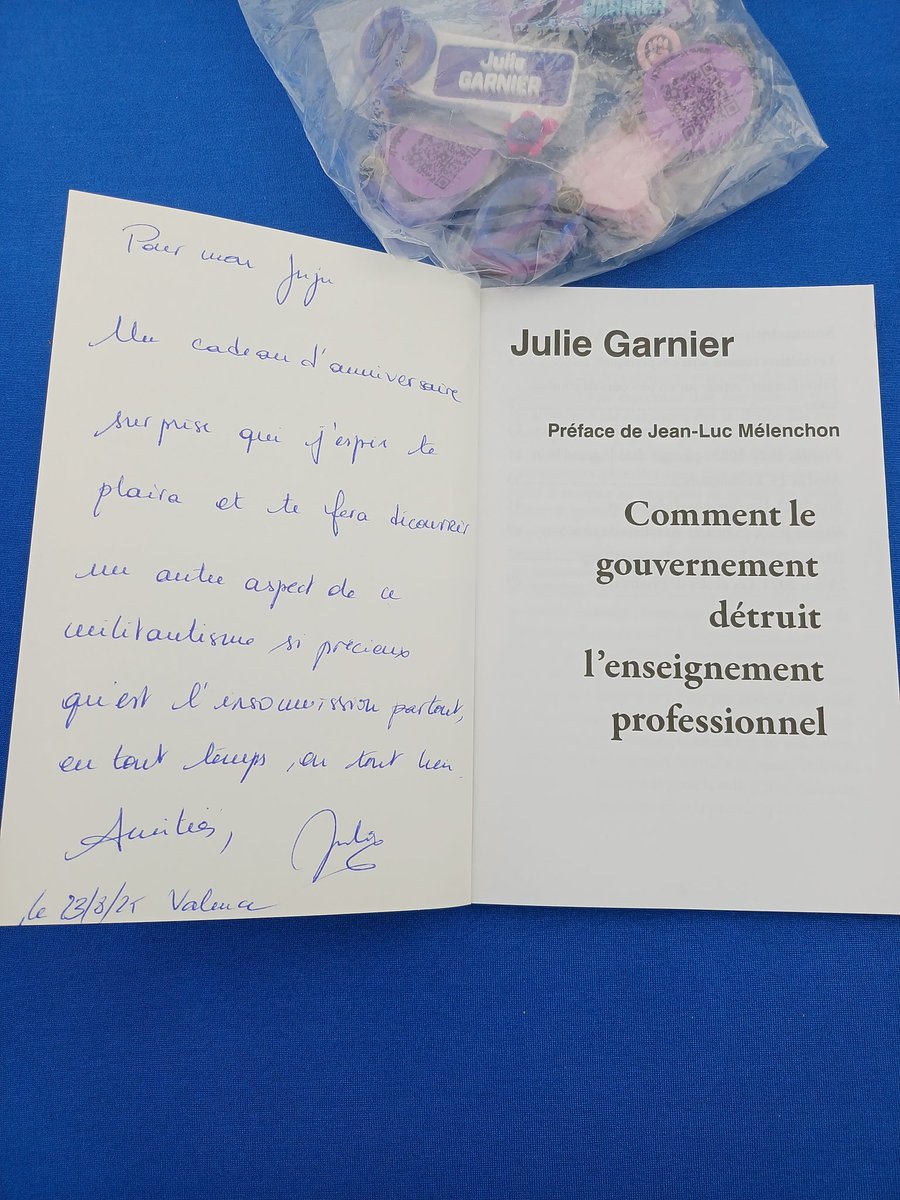 GARNIER
Julie
GARNIER
Pour mon Juju
Un cadeau d'anniversaire
surprise qui j'espère te
plaira et te fera découvrir
un autre aspect de ce
militantisme si précieux
qu'est l'insoumission partout,
en tout temps, en tout lieu.
Amitiés, Julie
le 23/8/25 Valence
Julie Garnier
Préface de Jean-Luc Mélenchon
Comment le
gouvernement
détruit
l'enseignement
professionnel